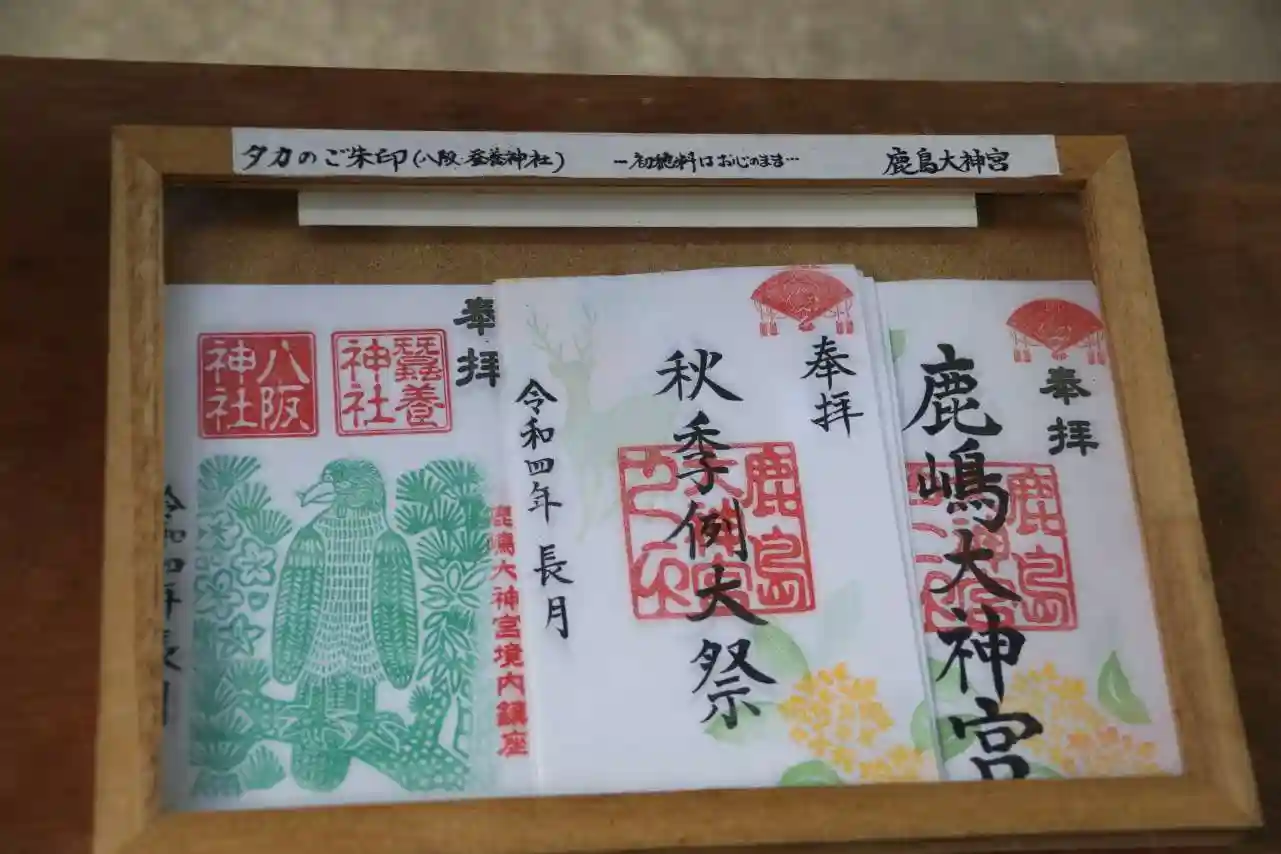 タカのご朱印(八阪・蚕養神社) ー初穂料はお心のまま… 鹿島大神宮
奉拝
鹿嶋大神宮
鹿島
奉拝
秋季例大祭
鹿島大神宮
令和四年 長月
奉拝
蠶養神社
八阪神社
鹿嶋大神宮境内鎮座
令和四年長月